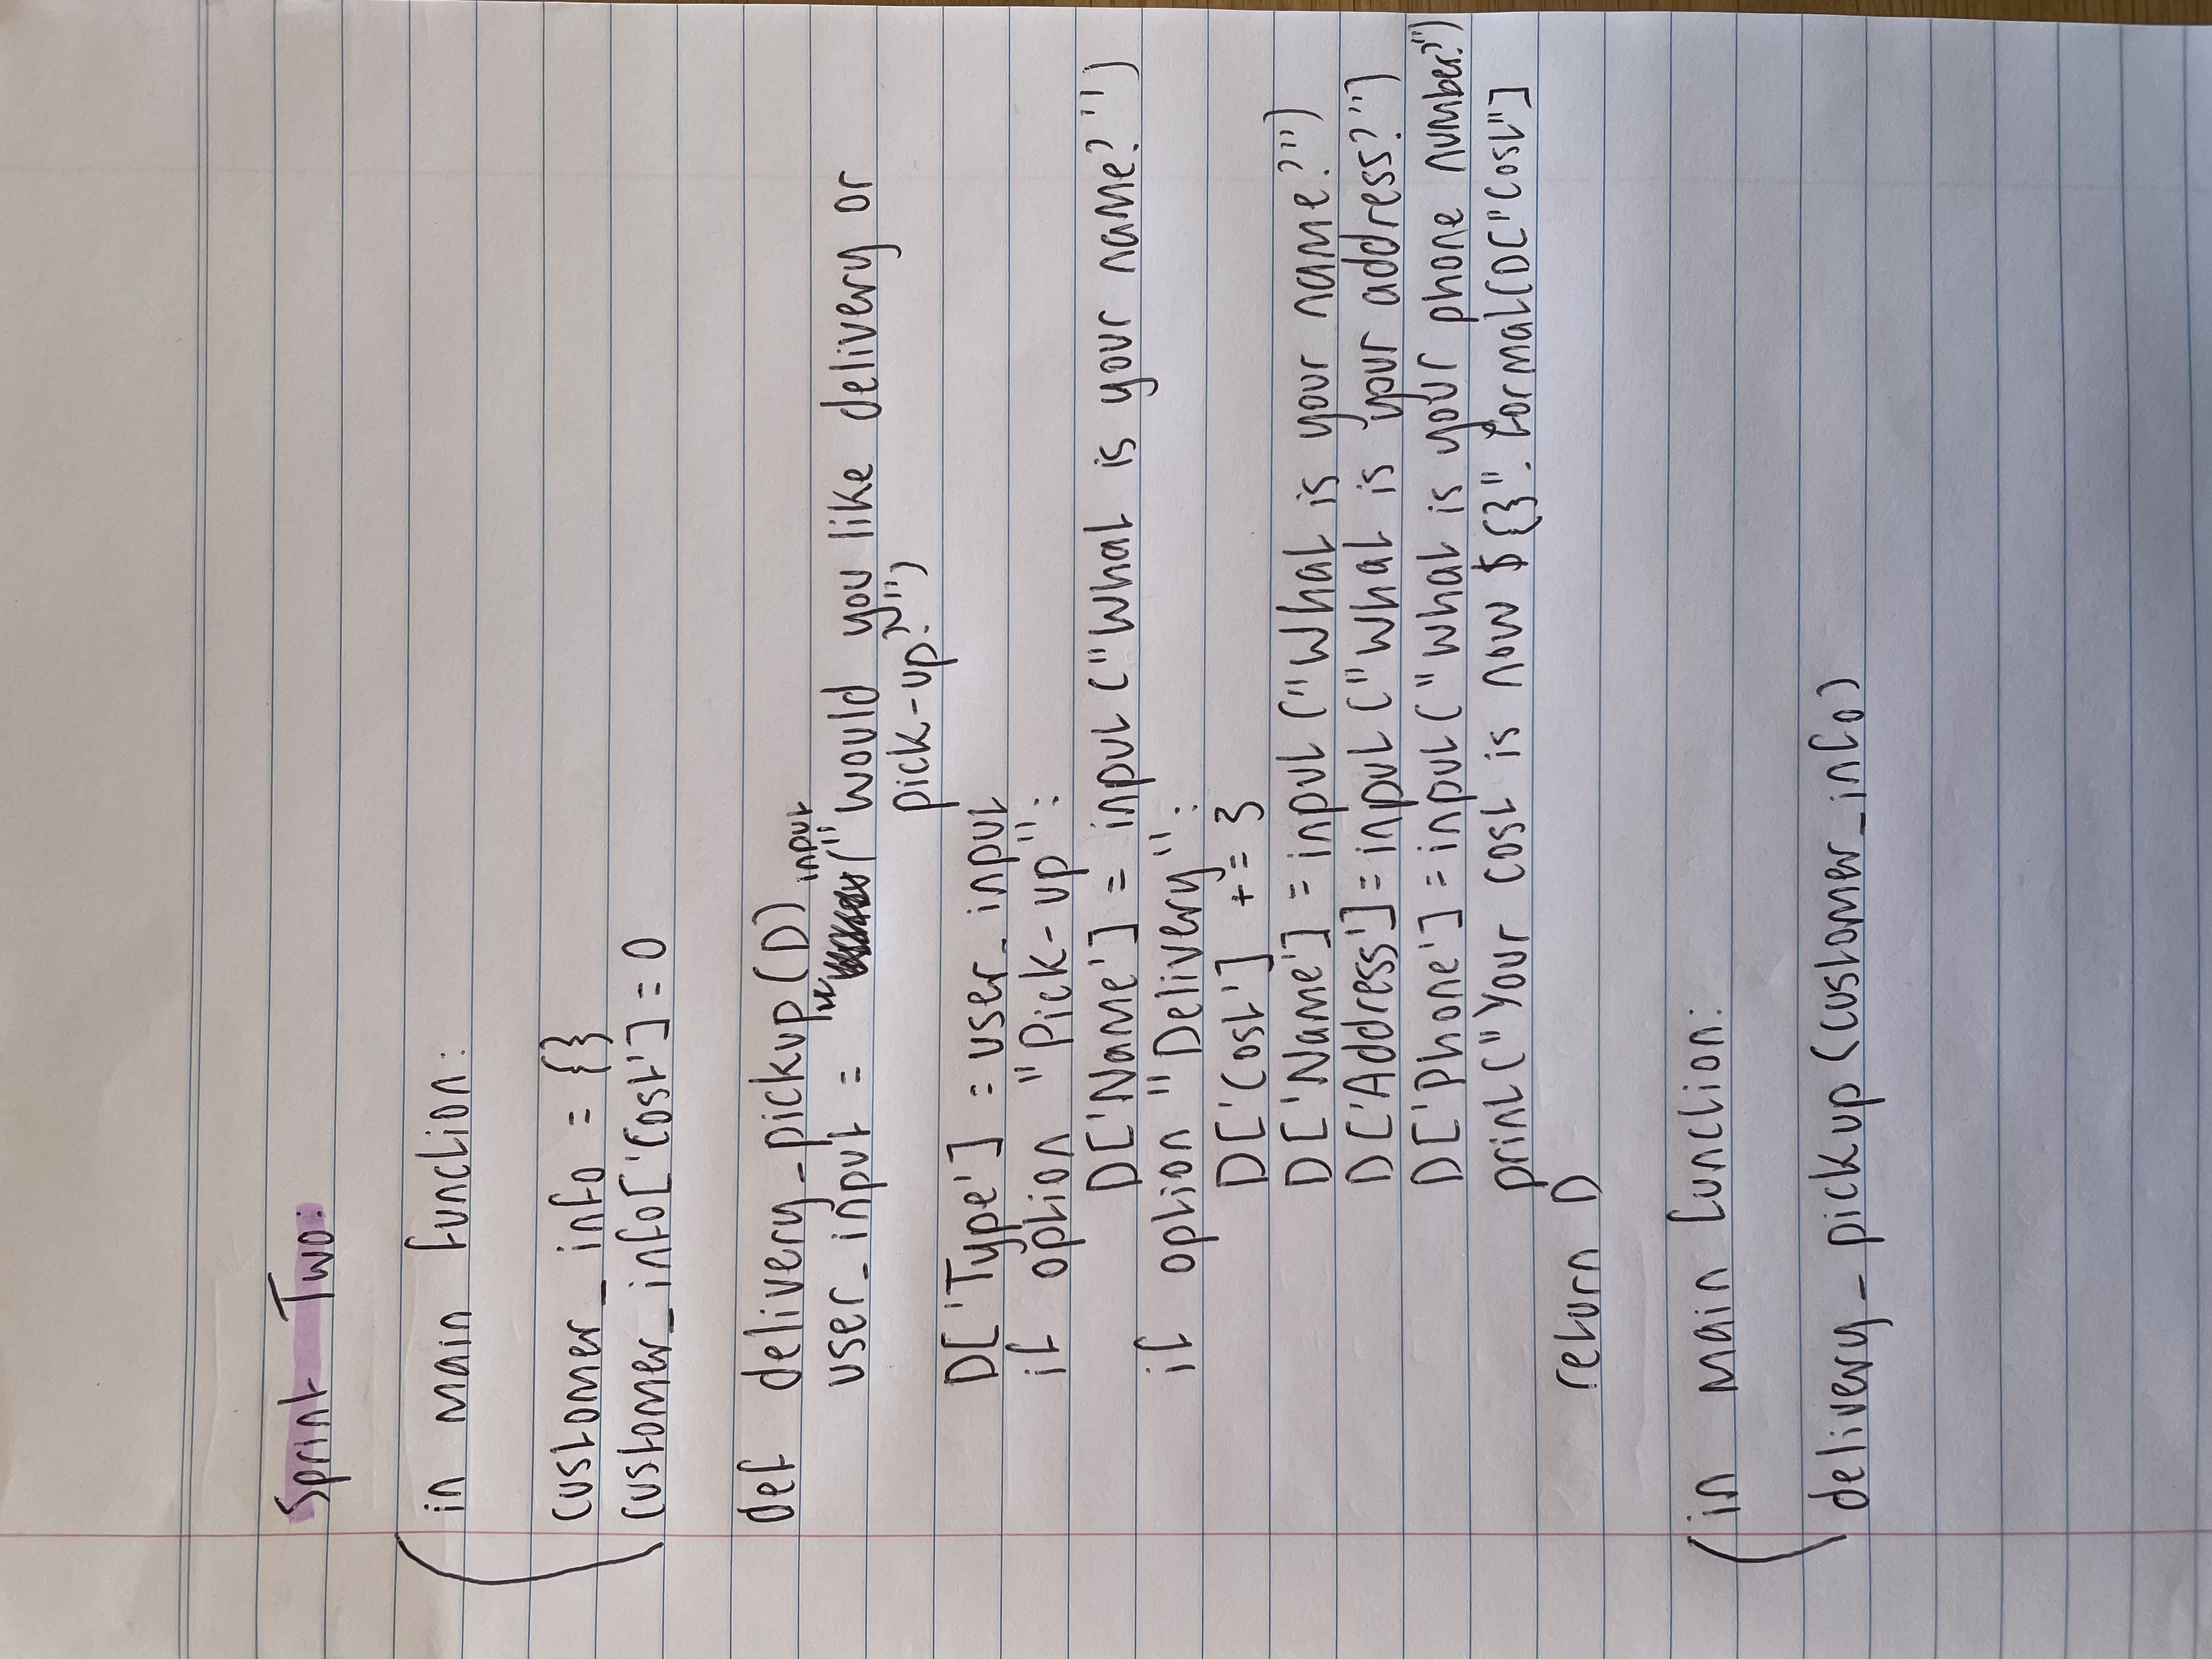 Sprint Two:
in main function:
customer_info = {}
customer_info['Cost'] = 0
def delivery_pickup(D)
input
user_input = " ("would you like delivery or
pick-up?")
D['Type'] = user_input
if option "Pick-up":
D['Name'] = input ("What is your name?")
if option "Delivery":
D['Cost'] += 3
D['Name'] = input ("What is your name?")
D['Address'] = input ("What is your address?")
D['Phone'] = input ("What is your phone number?")
print("Your cost is now ${}".format(D["Cost"]
return D
in main function:
delivery_pickup(customer_info)